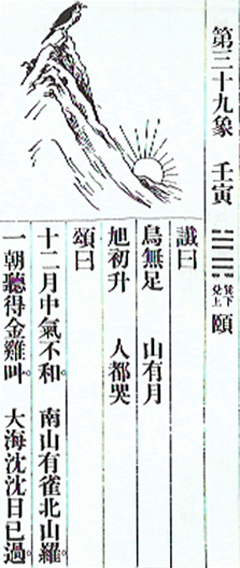 第三十九象 壬寅 巽下兌上 頤
讖曰
鳥無足 山有月
旭初升 人都哭
頌曰
十二月中氣不和。南山有雀北山羅。
一朝聽得金雞叫。大海沈沈日已過。